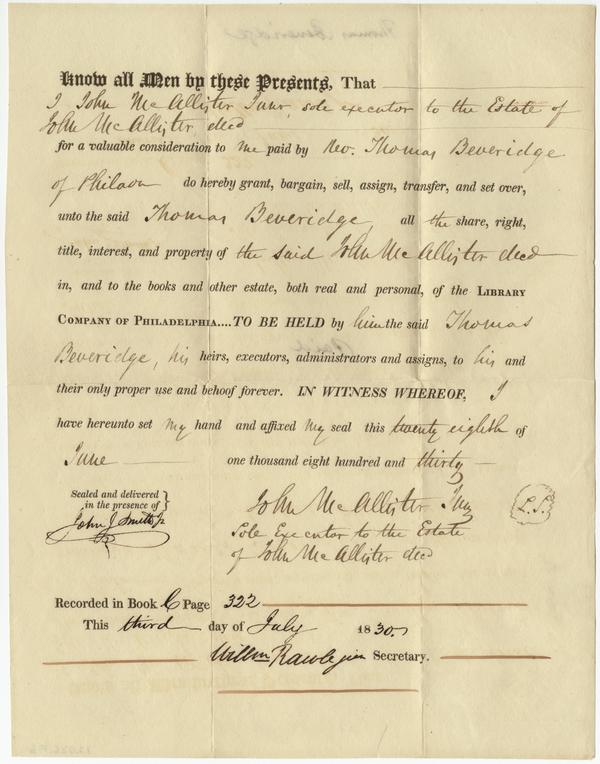 Know all Men by these Presents, That
I John McAllister Junr, sole executor to the Estate of
John McAllister, decd
for a valuable consideration to me paid by Rev. Thomas Beveridge
of Philada do hereby grant, bargain, sell, assign, transfer, and set over,
unto the said Thomas Beveridge all the share, right,
title, interest, and property of the said John McAllister decd
in, and to the books and other estate, both real and personal, of the LIBRARY
COMPANY OF PHILADELPHIA....TO BE HELD by him the said Thomas
Beveridge, his heirs, executors, administrators and assigns, to his and
their only proper use and behoof forever. IN WITNESS WHEREOF, I
have hereunto set my hand and affixed my seal this twenty eighth of
June one thousand eight hundred and thirty
Sealed and delivered
in the presence of
John J. Smith Jr
John McAllister Junr
L.S.
Sole Executor to the Estate
of John McAllister decd
Recorded in Book C Page 322
This third day of July 1830.
Willm Rawle jun Secretary.